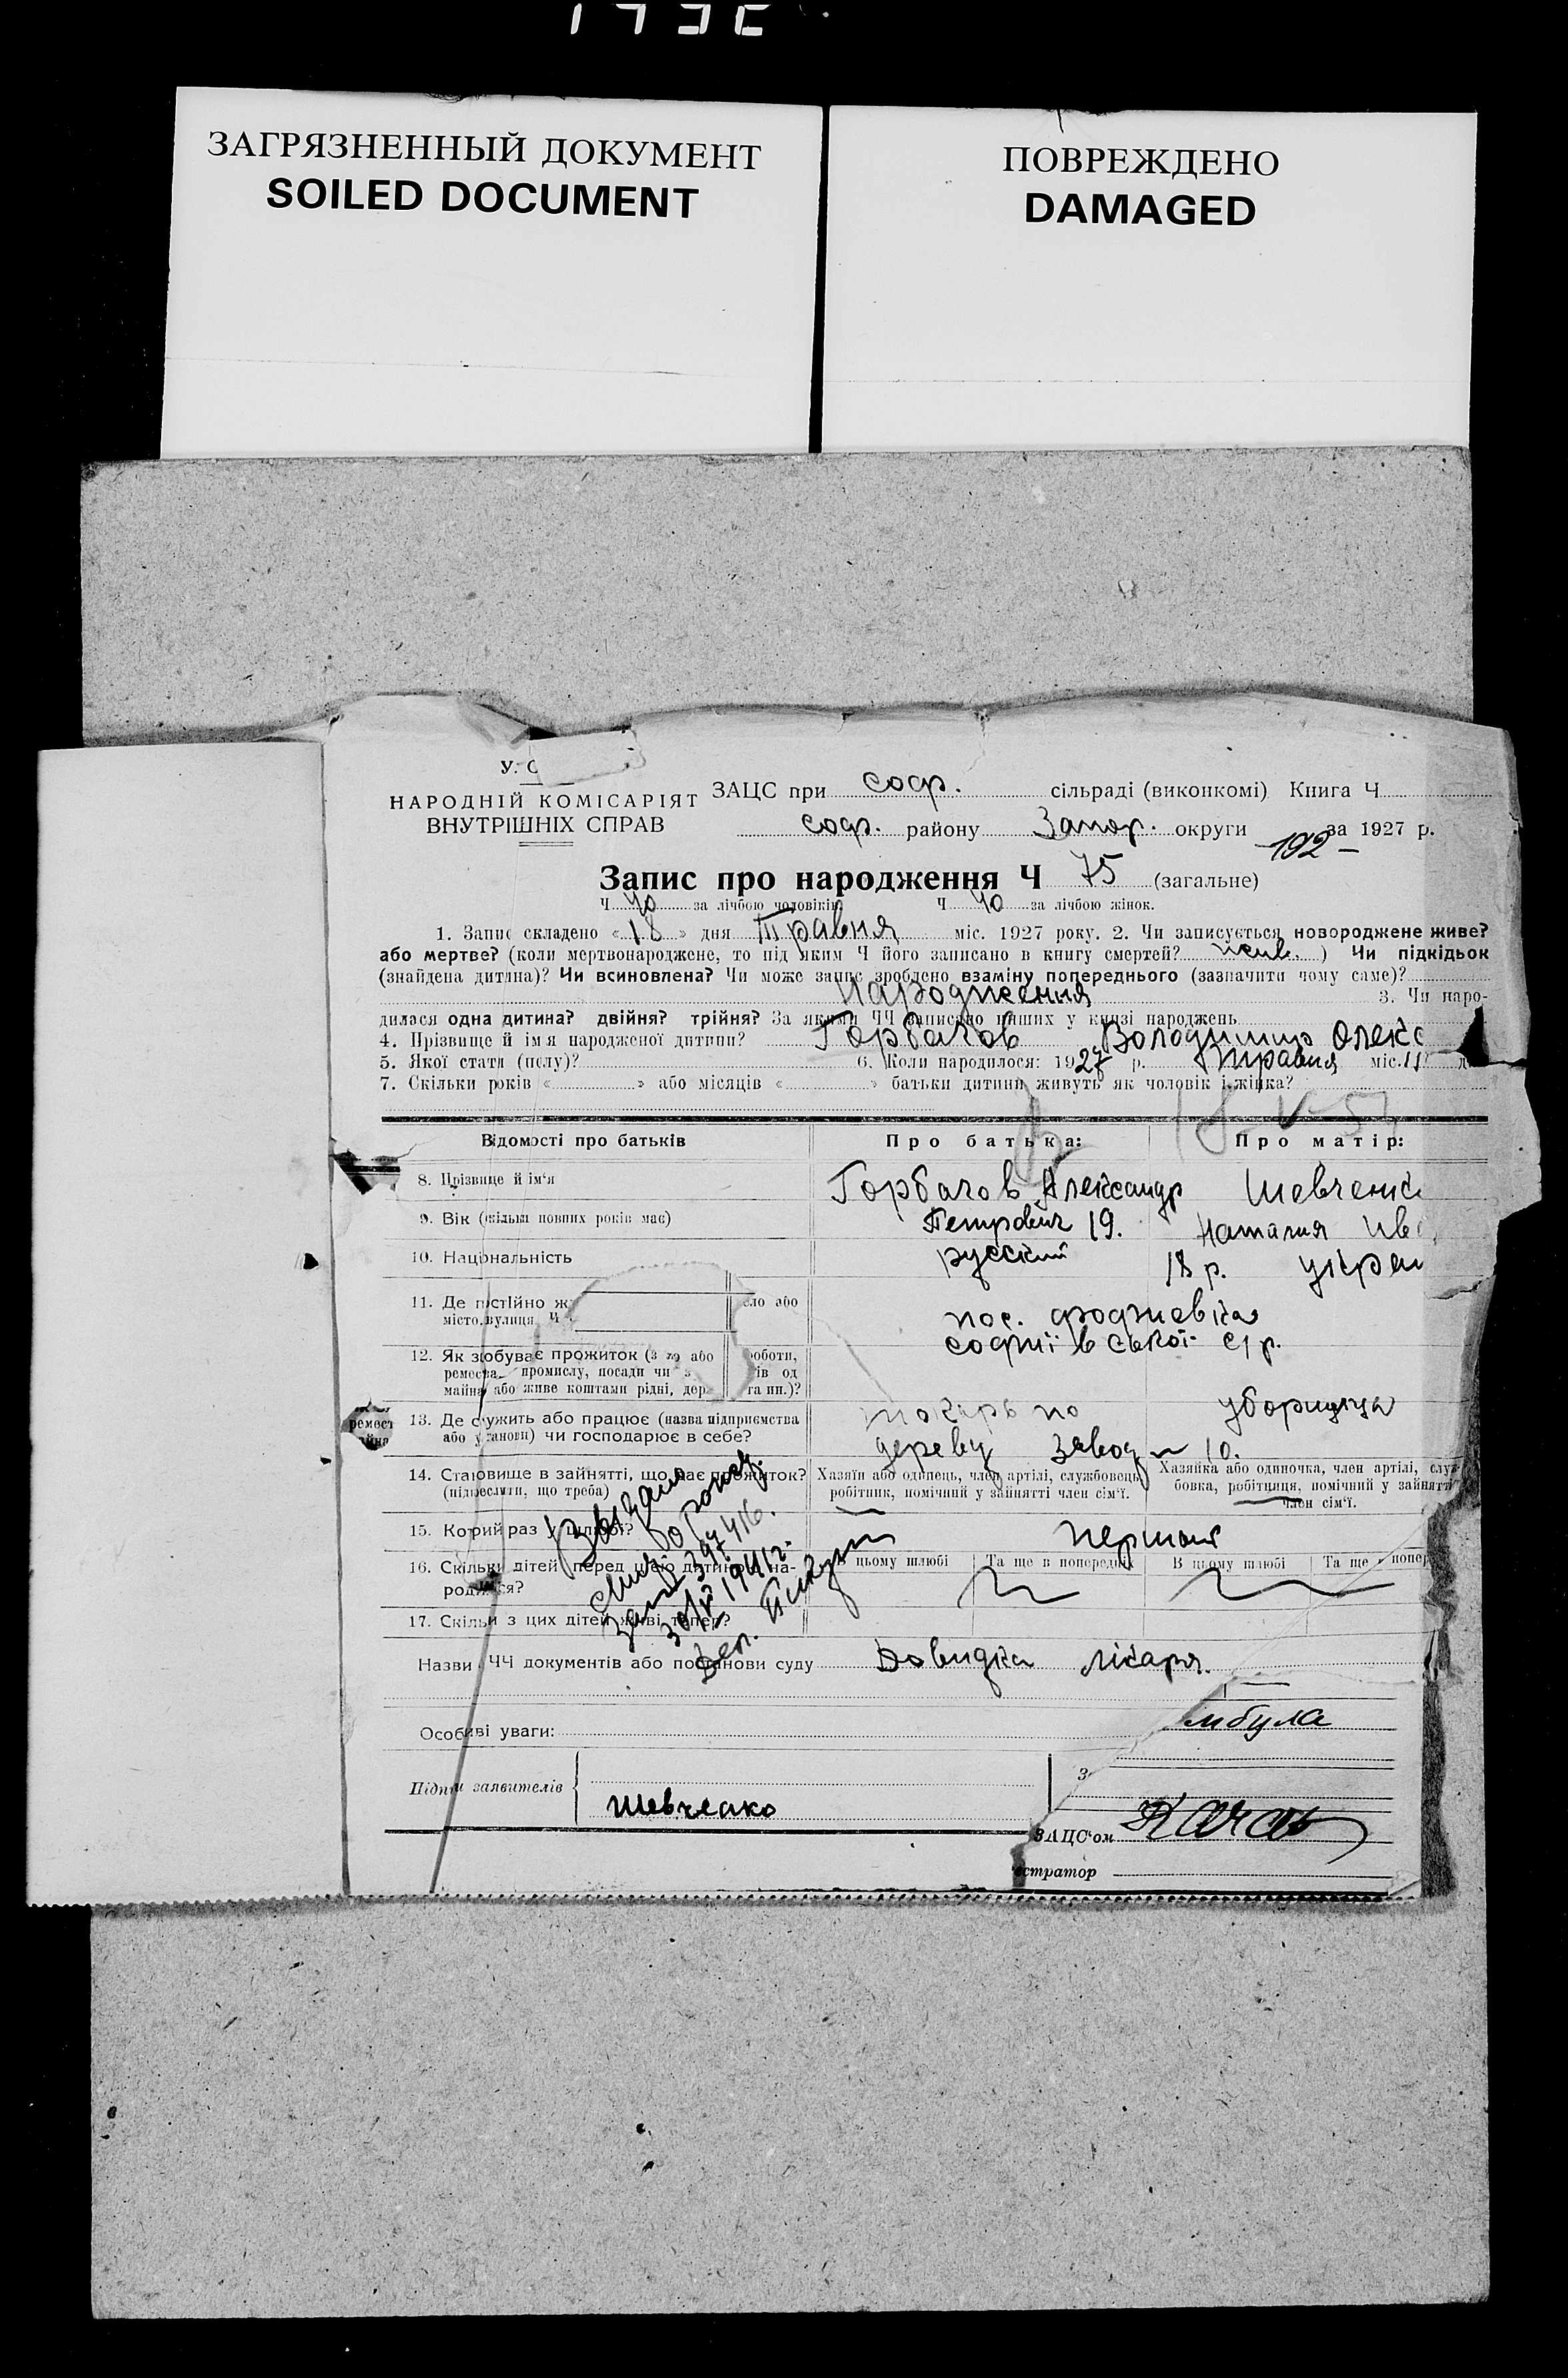 ЗАГРЯЗНЕННЫЙ ДОКУМЕНТ
SOILED DOCUMENT
ПОВРЕЖДЕНО
DAMAGED
У. С
НАРОДНІЙ КОМІСАРІЯТ
ВНУТРІШНІХ СПРАВ
ЗАЦС при соф. сільраді (виконкомі) Книга Ч
соф. району Запор. округи за 1927 р.
192 –
Запис про народження Ч 75 (загальне)
Ч 40 за лічбою чоловіків Ч 40 за лічбою жінок.
1. Запис складено « 18 » дня Травня міс. 1927 року. 2. Чи записується новороджене живе?
або мертве? (коли мертвонароджене, то під яким Ч його записано в книгу смертей? ) Чи підкідьок
(знайдена дитина)? Чи всиновлена? Чи може запис зроблено взаміну попереднього (зазначити чому саме)?
народження 3. Чи наро-
дилася одна дитина? двійня? трійня? За якими ЧЧ записано инших у книзі народжень
4. Прізвище й ім'я народженої дитини? Горбачов Володимир Олекс
5. Якої стати (полу)? 6. Коли народилося: 1927 р. Травня міс. 11
7. Скільки років « » або місяців « » батьки дитини живуть як чоловік і жінка?
18-V-5
Відомості про батьків Про батька: Про матір:
8. Прізвище й ім'я Горбачов Александр Шевченк
9. Вік (скільки повних років має) Петрович 19. Наталия Ив
10. Національність русский 18 р. украи
11. Де постійно ж ело або
місто, вулиця Ч
пос.
софиївської с/р.
12. Як здобуває прожиток (з або роботи,
ремества, промислу, посади чи з ів од
майна або живе коштами рідні, дер та ин.)?
ремест
айна
13. Де служить або працює (назва підприємства токарь по уборщица
або установи) чи господарює в себе? дереву завод 10.
14. Становище в зайнятті, що дає прожиток? Хазяїн або одинець, член артілі, службовець, Хазяйка або одиночка, член артілі, служ
(підкреслити, що треба) робітник, помічний у зайнятті член сім'ї. бовка, робітниця, помічний у зайнятті
член сім'ї.
15. Котрий раз у шлюбі? першый
16. Скільки дітей перед цією дитиною на- В цьому шлюбі Та ще в попередніх В цьому шлюбі Та ще в попер
родилося?
17. Скільки з цих дітей живі тепер?
397416.
Назви ЧЧ документів або постанови суду Довидка лікаря.
Особиві уваги:
Підпи заявителів Шевченко
З
ЗАЦС'ом
стратор